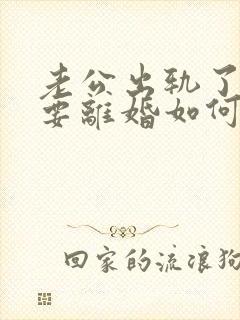 老公出轨了
要離婚如何
回家的流浪狗